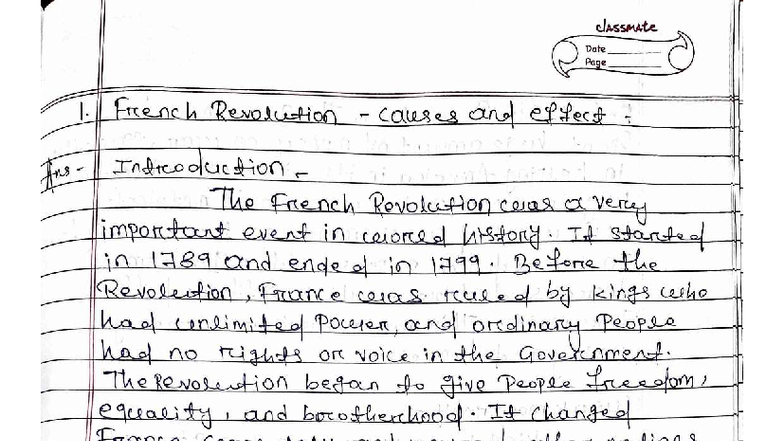 classmate
Date
Page
1. French Revolution - causes and effect :
Ans - Introduction -
The French Revolution was a very
important event in world history. It started
in 1789 and ended in 1799. Before the
Revolution, France was ruled by kings who
had unlimited power, and ordinary People
had no rights or voice in the Government.
The Revolution began to give People freedom,
equality, and brotherhood. It changed
France